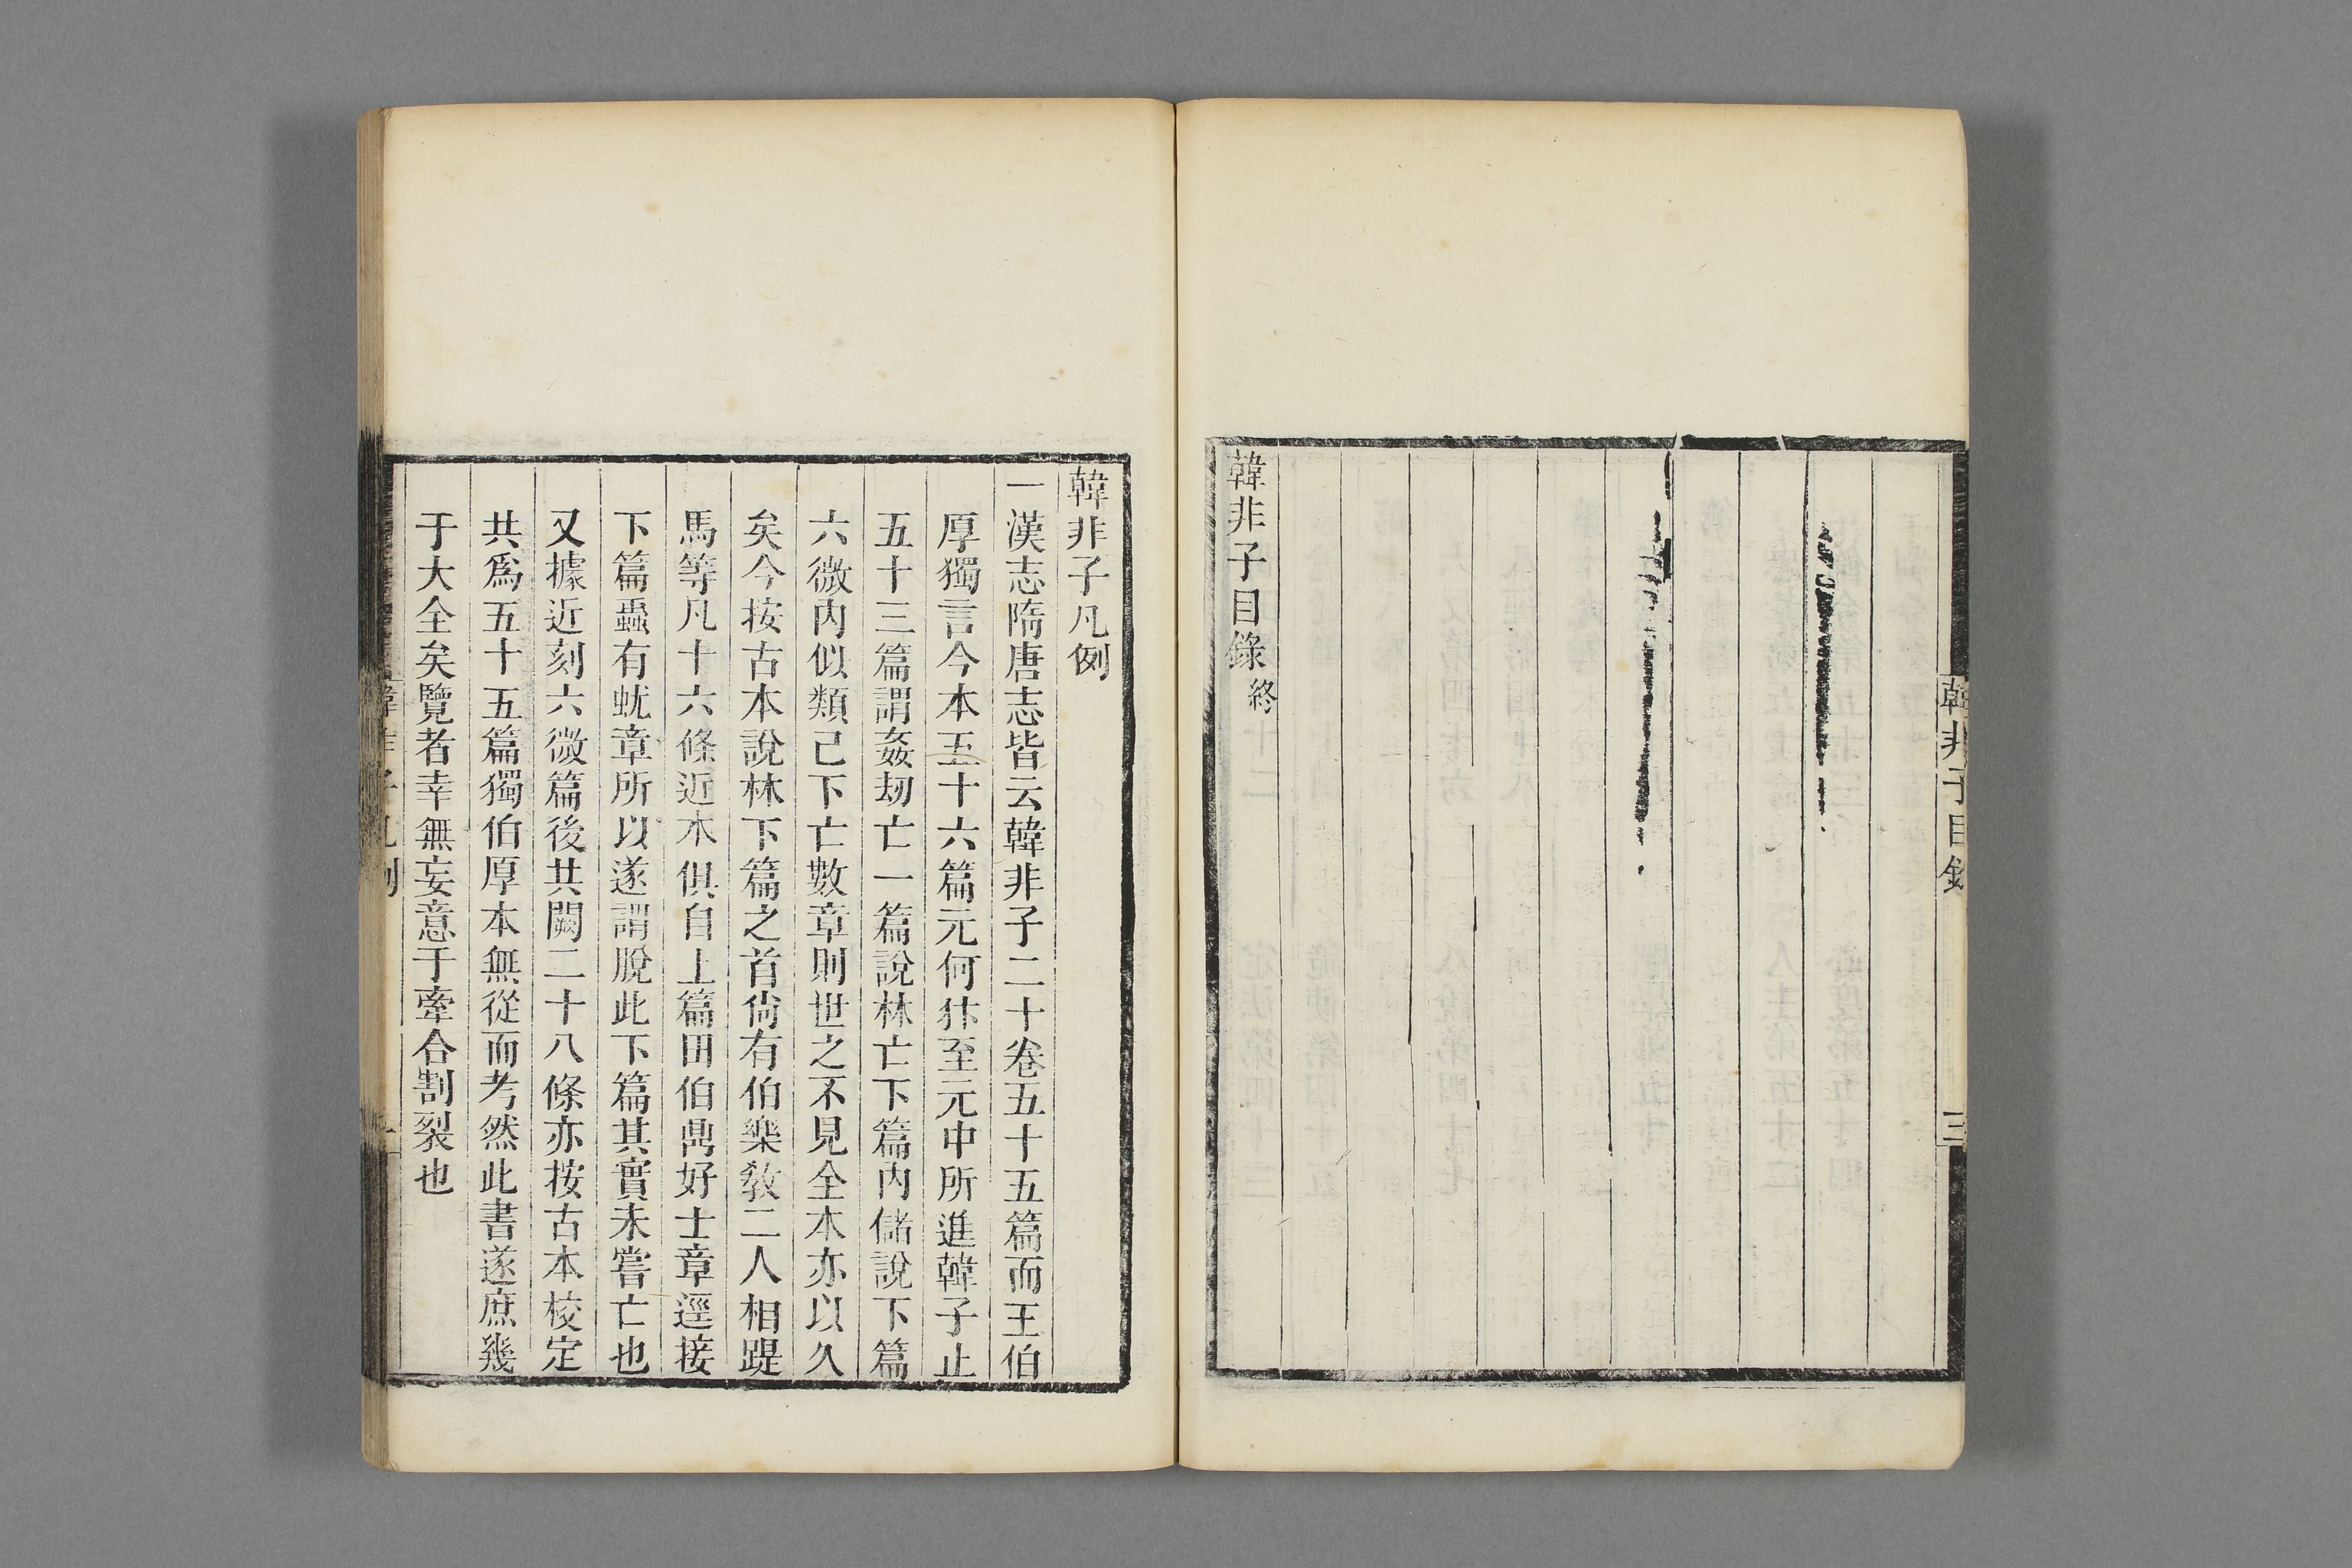 韓非子目錄
三
韓非子目錄終
韓非子凡例
一漢志隋唐志皆云韓非子二十卷五十五篇而王伯
厚獨言今本五十六篇元何犿至元中所進韓子止
五十三篇謂姦劫亡一篇說林亡下篇內儲說下篇
六微內似類己下亡數章則世之不見全本亦以久
矣今按古本說林下篇之首尚有伯樂敎二人相踶
馬等凡十六條近本俱自上篇田伯鼎好士章逕接
下篇蟲有蚘章所以遂謂脫此下篇其實未嘗亡也
又據近刻六微篇後共闕二十八條亦按古本校定
共爲五十五篇獨伯厚本無從而考然此書遂庶幾
于大全矣覽者幸無妄意于牽合割裂也